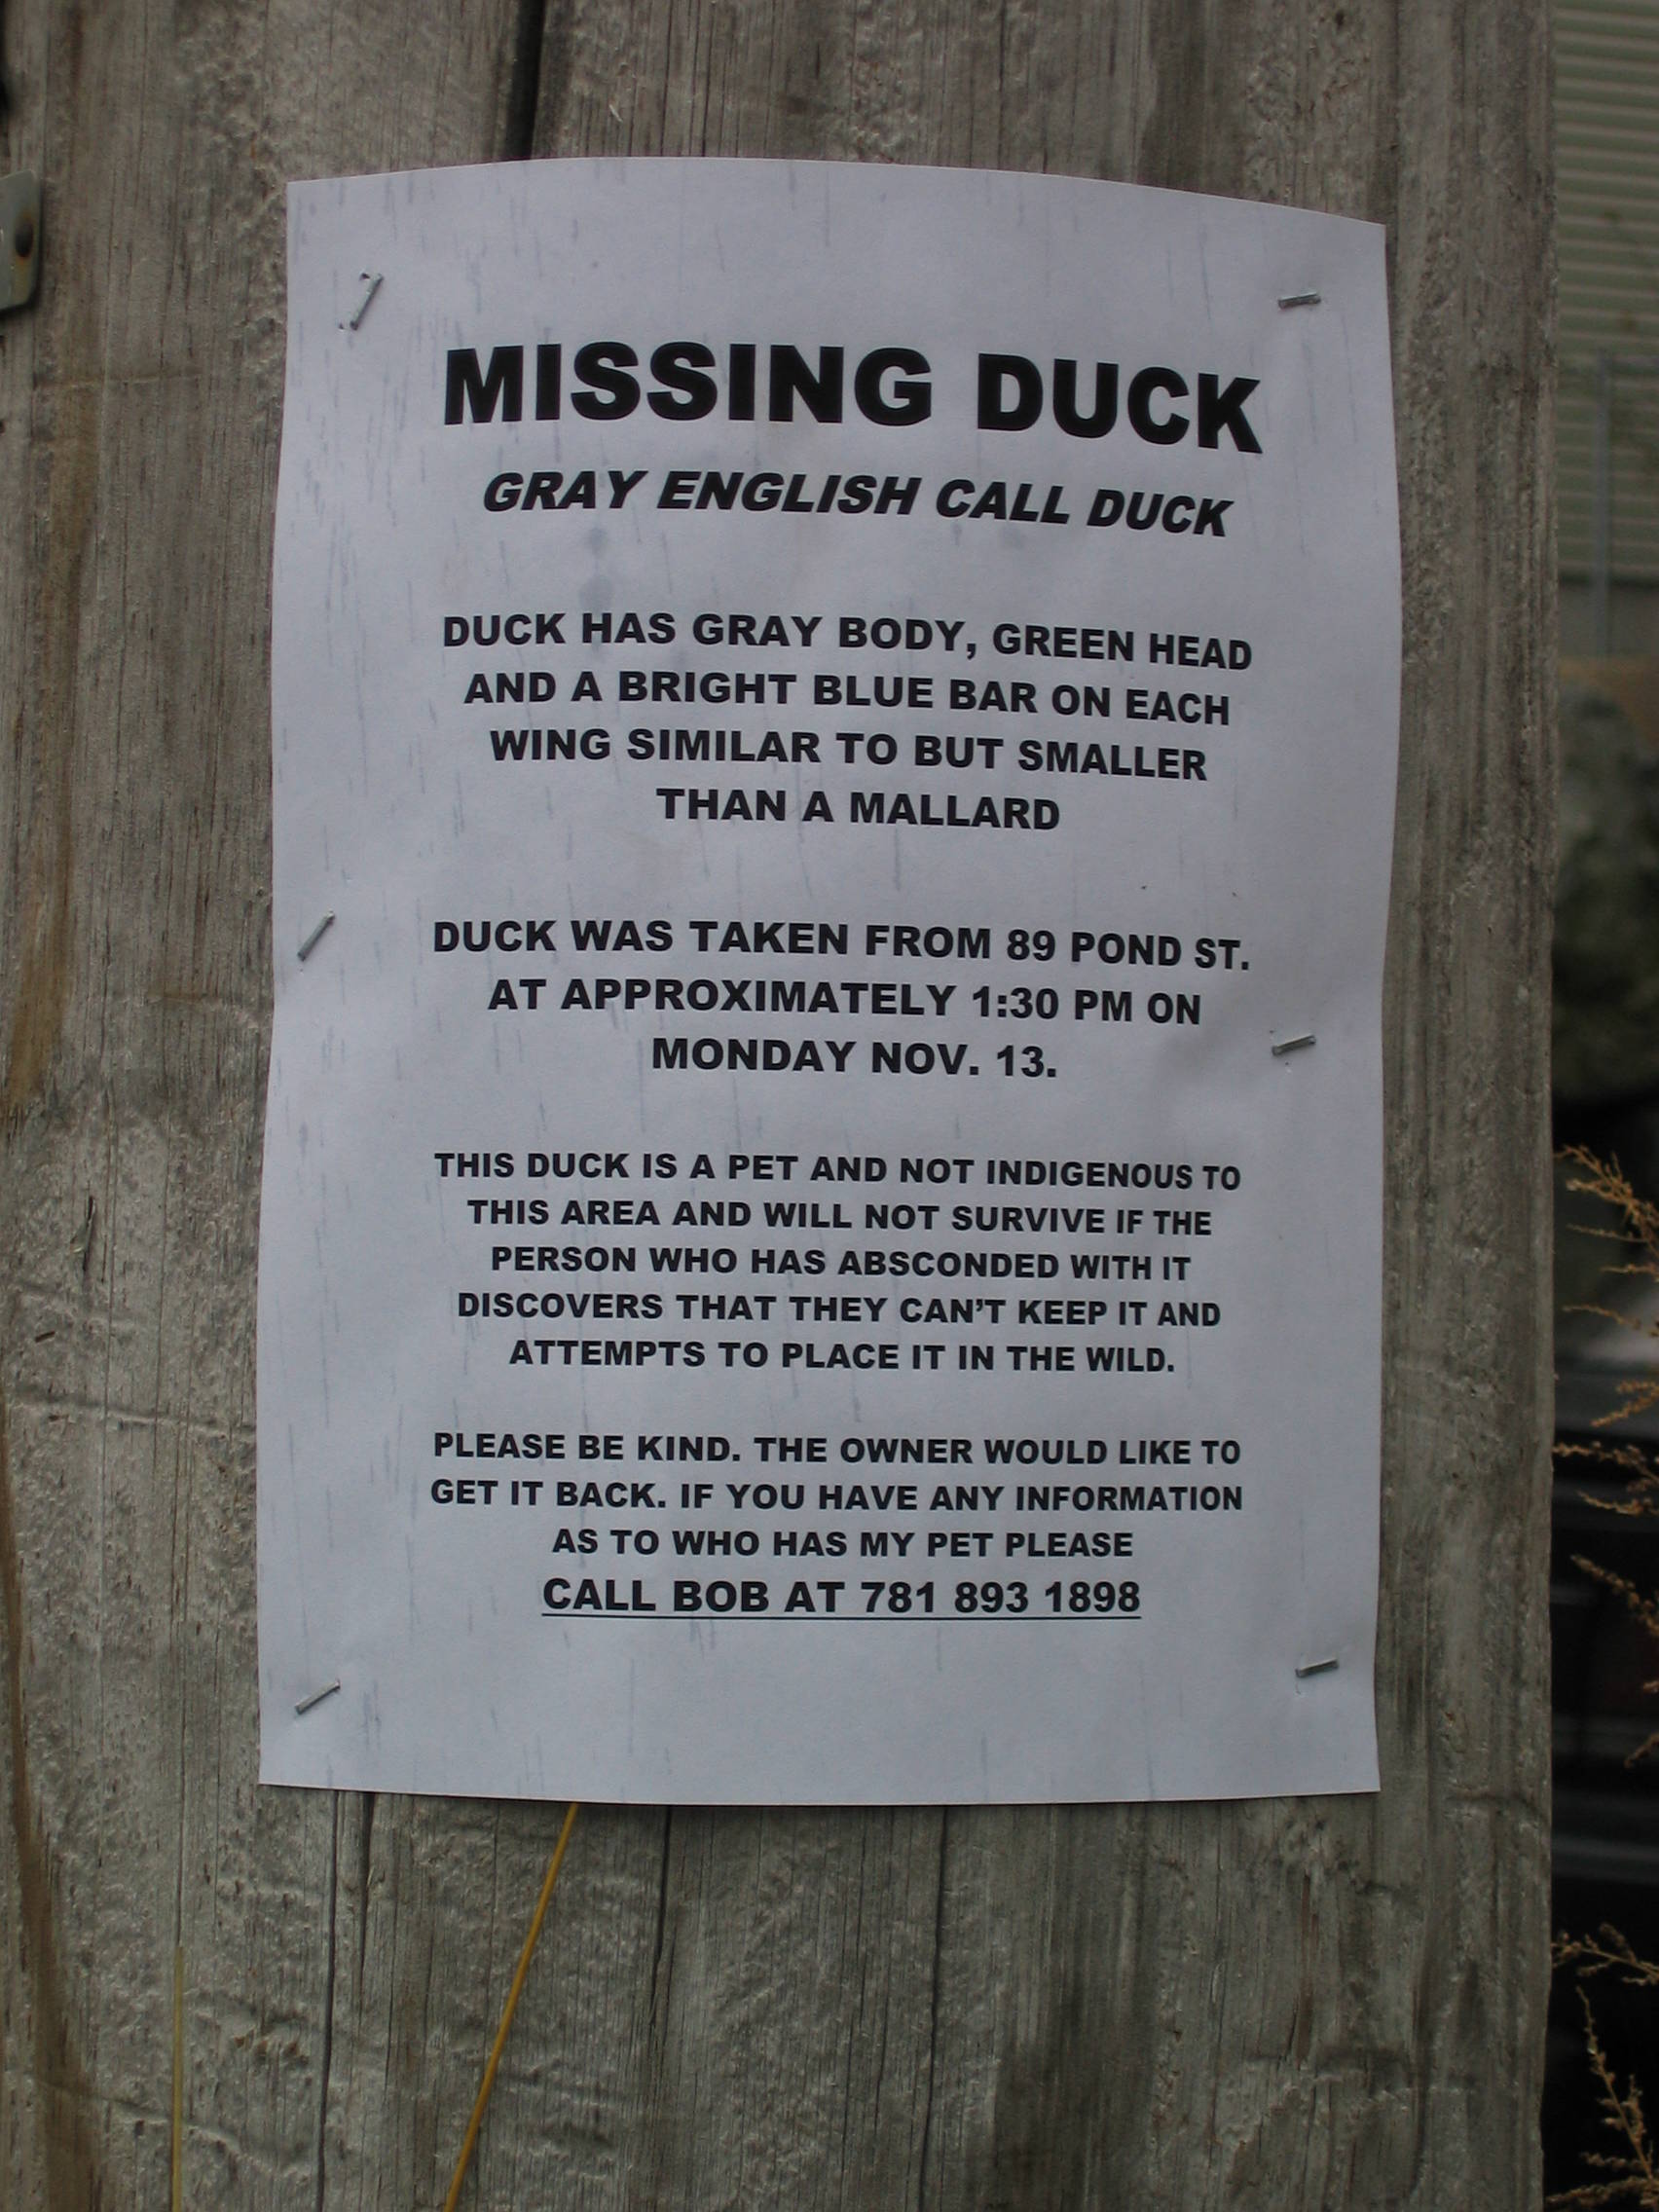 MISSING DUCK
GRAY ENGLISH CALL DUCK
DUCK HAS GRAY BODY, GREEN HEAD
AND A BRIGHT BLUE BAR ON EACH
WING SIMILAR TO BUT SMALLER
THAN A MALLARD
DUCK WAS TAKEN FROM 89 POND ST.
AT APPROXIMATELY 1:30 PM ON
MONDAY NOV. 13.
THIS DUCK IS A PET AND NOT INDIGENOUS TO
THIS AREA AND WILL NOT SURVIVE IF THE
PERSON WHO HAS ABSCONDED WITH IT
DISCOVERS THAT THEY CAN'T KEEP IT AND
ATTEMPTS TO PLACE IT IN THE WILD.
PLEASE BE KIND. THE OWNER WOULD LIKE TO
GET IT BACK. IF YOU HAVE ANY INFORMATION
AS TO WHO HAS MY PET PLEASE
CALL BOB AT 781 893 1898